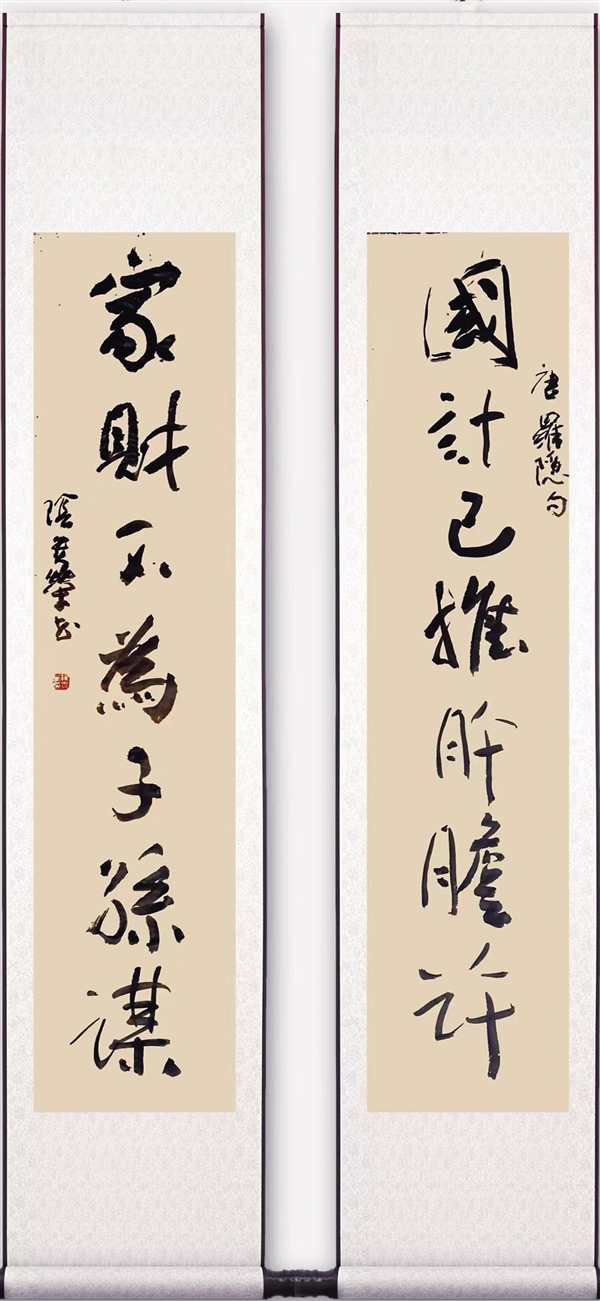 唐羅隱句
國計已推肝膽許
家財不為子孫謀